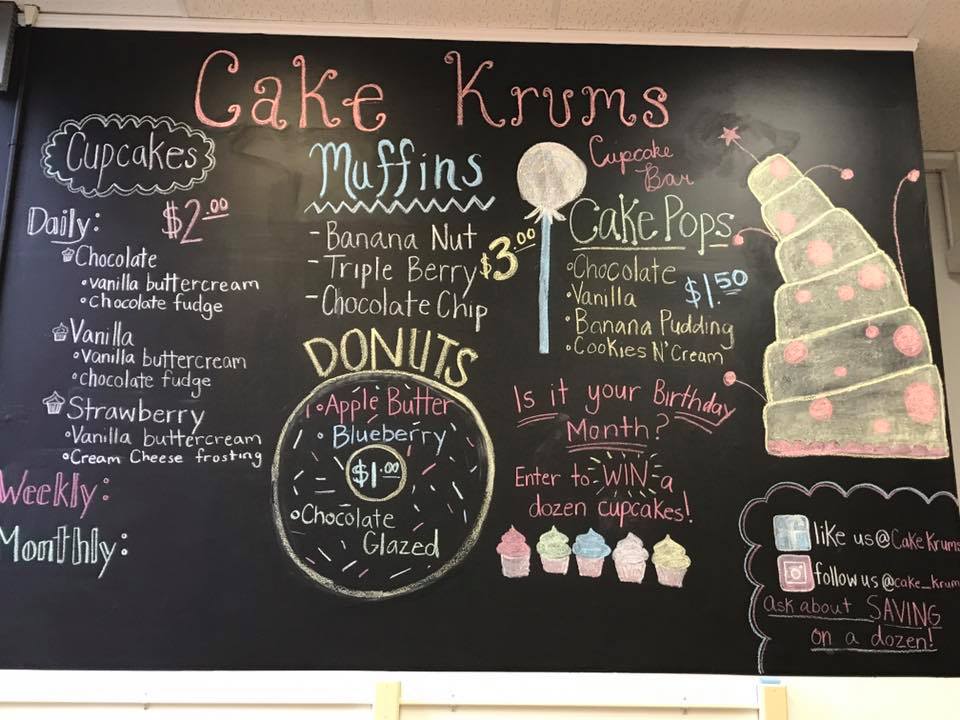 Cake Krums
Cupcake
Bar
Cupcakes
Daily: $2.00
Chocolate
• vanilla buttercream
• chocolate fudge
Vanilla
• Vanilla buttercream
• chocolate fudge
Strawberry
• Vanilla buttercream
• Cream Cheese frosting
Weekly:
Monthly:
Muffins
- Banana Nut
- Triple Berry
- Chocolate Chip
$3.00
DONUTS
• Apple Butter
• Blueberry
$1.00
• Chocolate
Glazed
Cake Pops
• Chocolate
• Vanilla
$1.50
• Banana Pudding
• Cookies N' Cream
Is it your Birthday
Month?
Enter to WIN a
dozen cupcakes!
f like us @Cake Krums
follow us @cake_krum
Ask about SAVING
on a dozen!